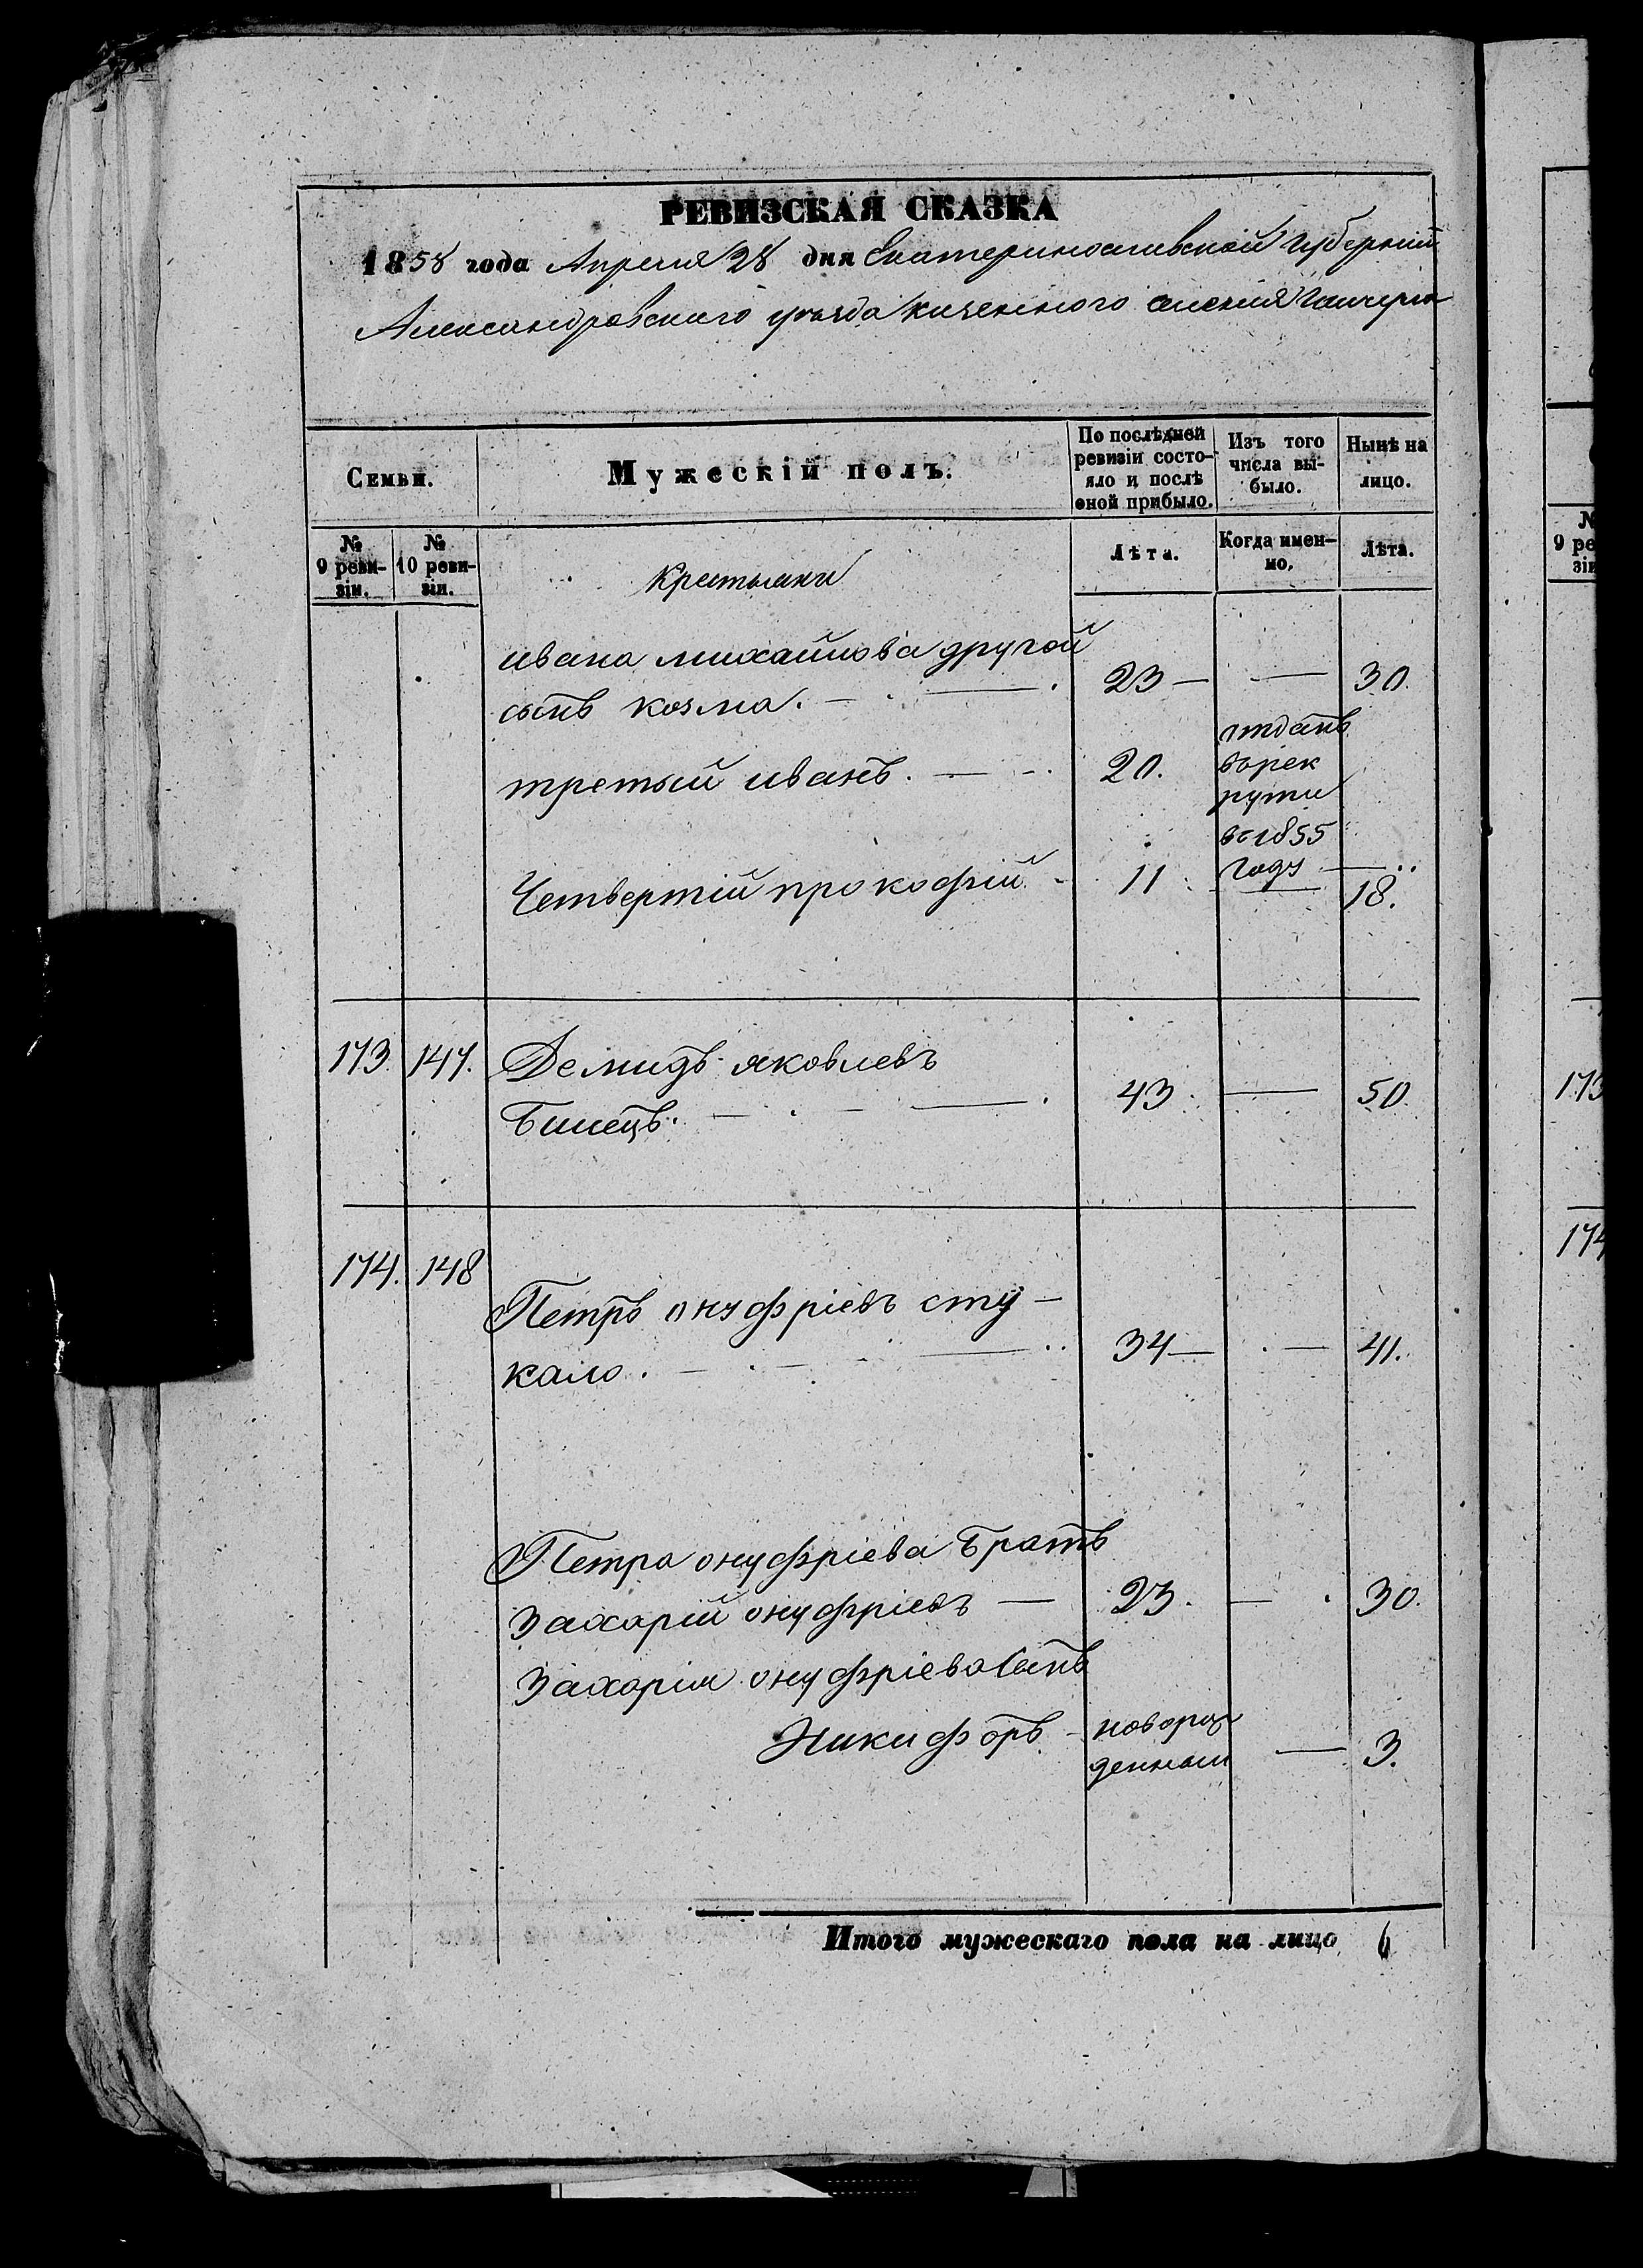 РЕВИЗСКАЯ СКАЗКА
1858 года Апреля 28 дня Екатеринославской губерніи
Александровского уезда казенного селения Гайчула
Семьи. Мужескій полъ. По послѣдней ревизіи состояло и послѣ оной прибыло. Изъ того числа выбыло. Нынѣ на лицо.
№ 9 ревизіи. № 10 ревизіи. Крестьяни Лѣта. Когда именно, Лѣта.
ивана михайлова другой
сынъ козма. 23 — — 30.
третьий иванъ. 20. отданъ
в рек
рути
в 1855
году —
Четвертій прокофій 11 — 18.
173. 147. Демидъ яковлевъ
Билецъ. 43 — 50
174. 148
Петръ онуфріевъ сту-
кало. 34 — — 41.
Петра онуфріева братъ
Захарій онуфріевъ — 23. — 30.
Захарія онуфріева сынъ
Никифоръ — новорож
денный — 3.
Итого мужескаго пола на лицо 6
№ 9 ре зін
173
174